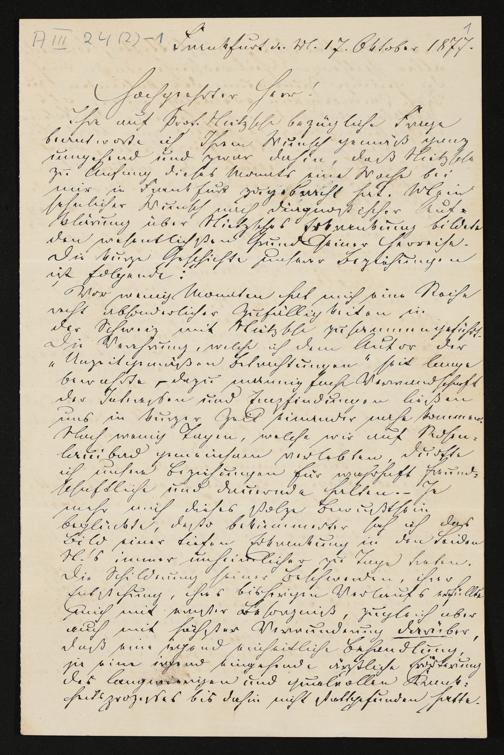 A III 24 (2) - 1
1
Frankfurt a. M. 17. Oktober 1877.
Hochgeehrter Herr!
Ihre auf Prof. Nietzsche bezügliche Frage
beantworte ich Ihrem Wunsch gemäß ganz
umgehend und zwar dahin, daß Nietzsche
zu Anfang dieses Monats eine Woche bei
mir in Frankfurt zugebracht hat. Mein
sehnlicher Wunsch nach diagnostischer Auf-
klärung über Nietzsches Erkrankung bildete
den wesentlichsten Grund seiner Herreise.
Die kurze Geschichte unserer Beziehungen
ist folgende:
Vor wenig Monaten hat mich eine Reihe
recht absonderlicher Zufälligkeiten in
der Schweiz mit Nietzsche zusammengeführt.
Die Verehrung, welche ich dem Autor der
„Unzeitgemäßen Betrachtungen" seit lange
bewahrte, dazu mannigfache Verwandtschaft
der Interessen und Empfindungen ließen
uns in kurzer Zeit einander nahe kommen.
Nach wenig Tagen, welche wir auf Rosen-
lauibad gemeinsam verlebten, durfte
ich unsere Beziehungen für wahrhaft freund-
schaftliche und dauernde halten. – Je
mehr mich dieses stolze Bewußtsein
beglückte, desto bekümmerter sah ich das
Bild einer tiefen Erkrankung in den Leiden
N's immer unheimlicher zu Tage treten.
Die Schilderung seiner Beschwerden, ihrer
Entstehung, ihres bisherigen Verlaufs erfüllte
mich mit ernster Besorgniß, zugleich aber
auch mit höchster Verwunderung darüber,
daß eine irgend einheitliche Behandlung,
ja eine irgend eingehende ärztliche
des langwierigen und qualvollen Krank-
heitsprozesses bis dahin nicht stattgefunden hatte.